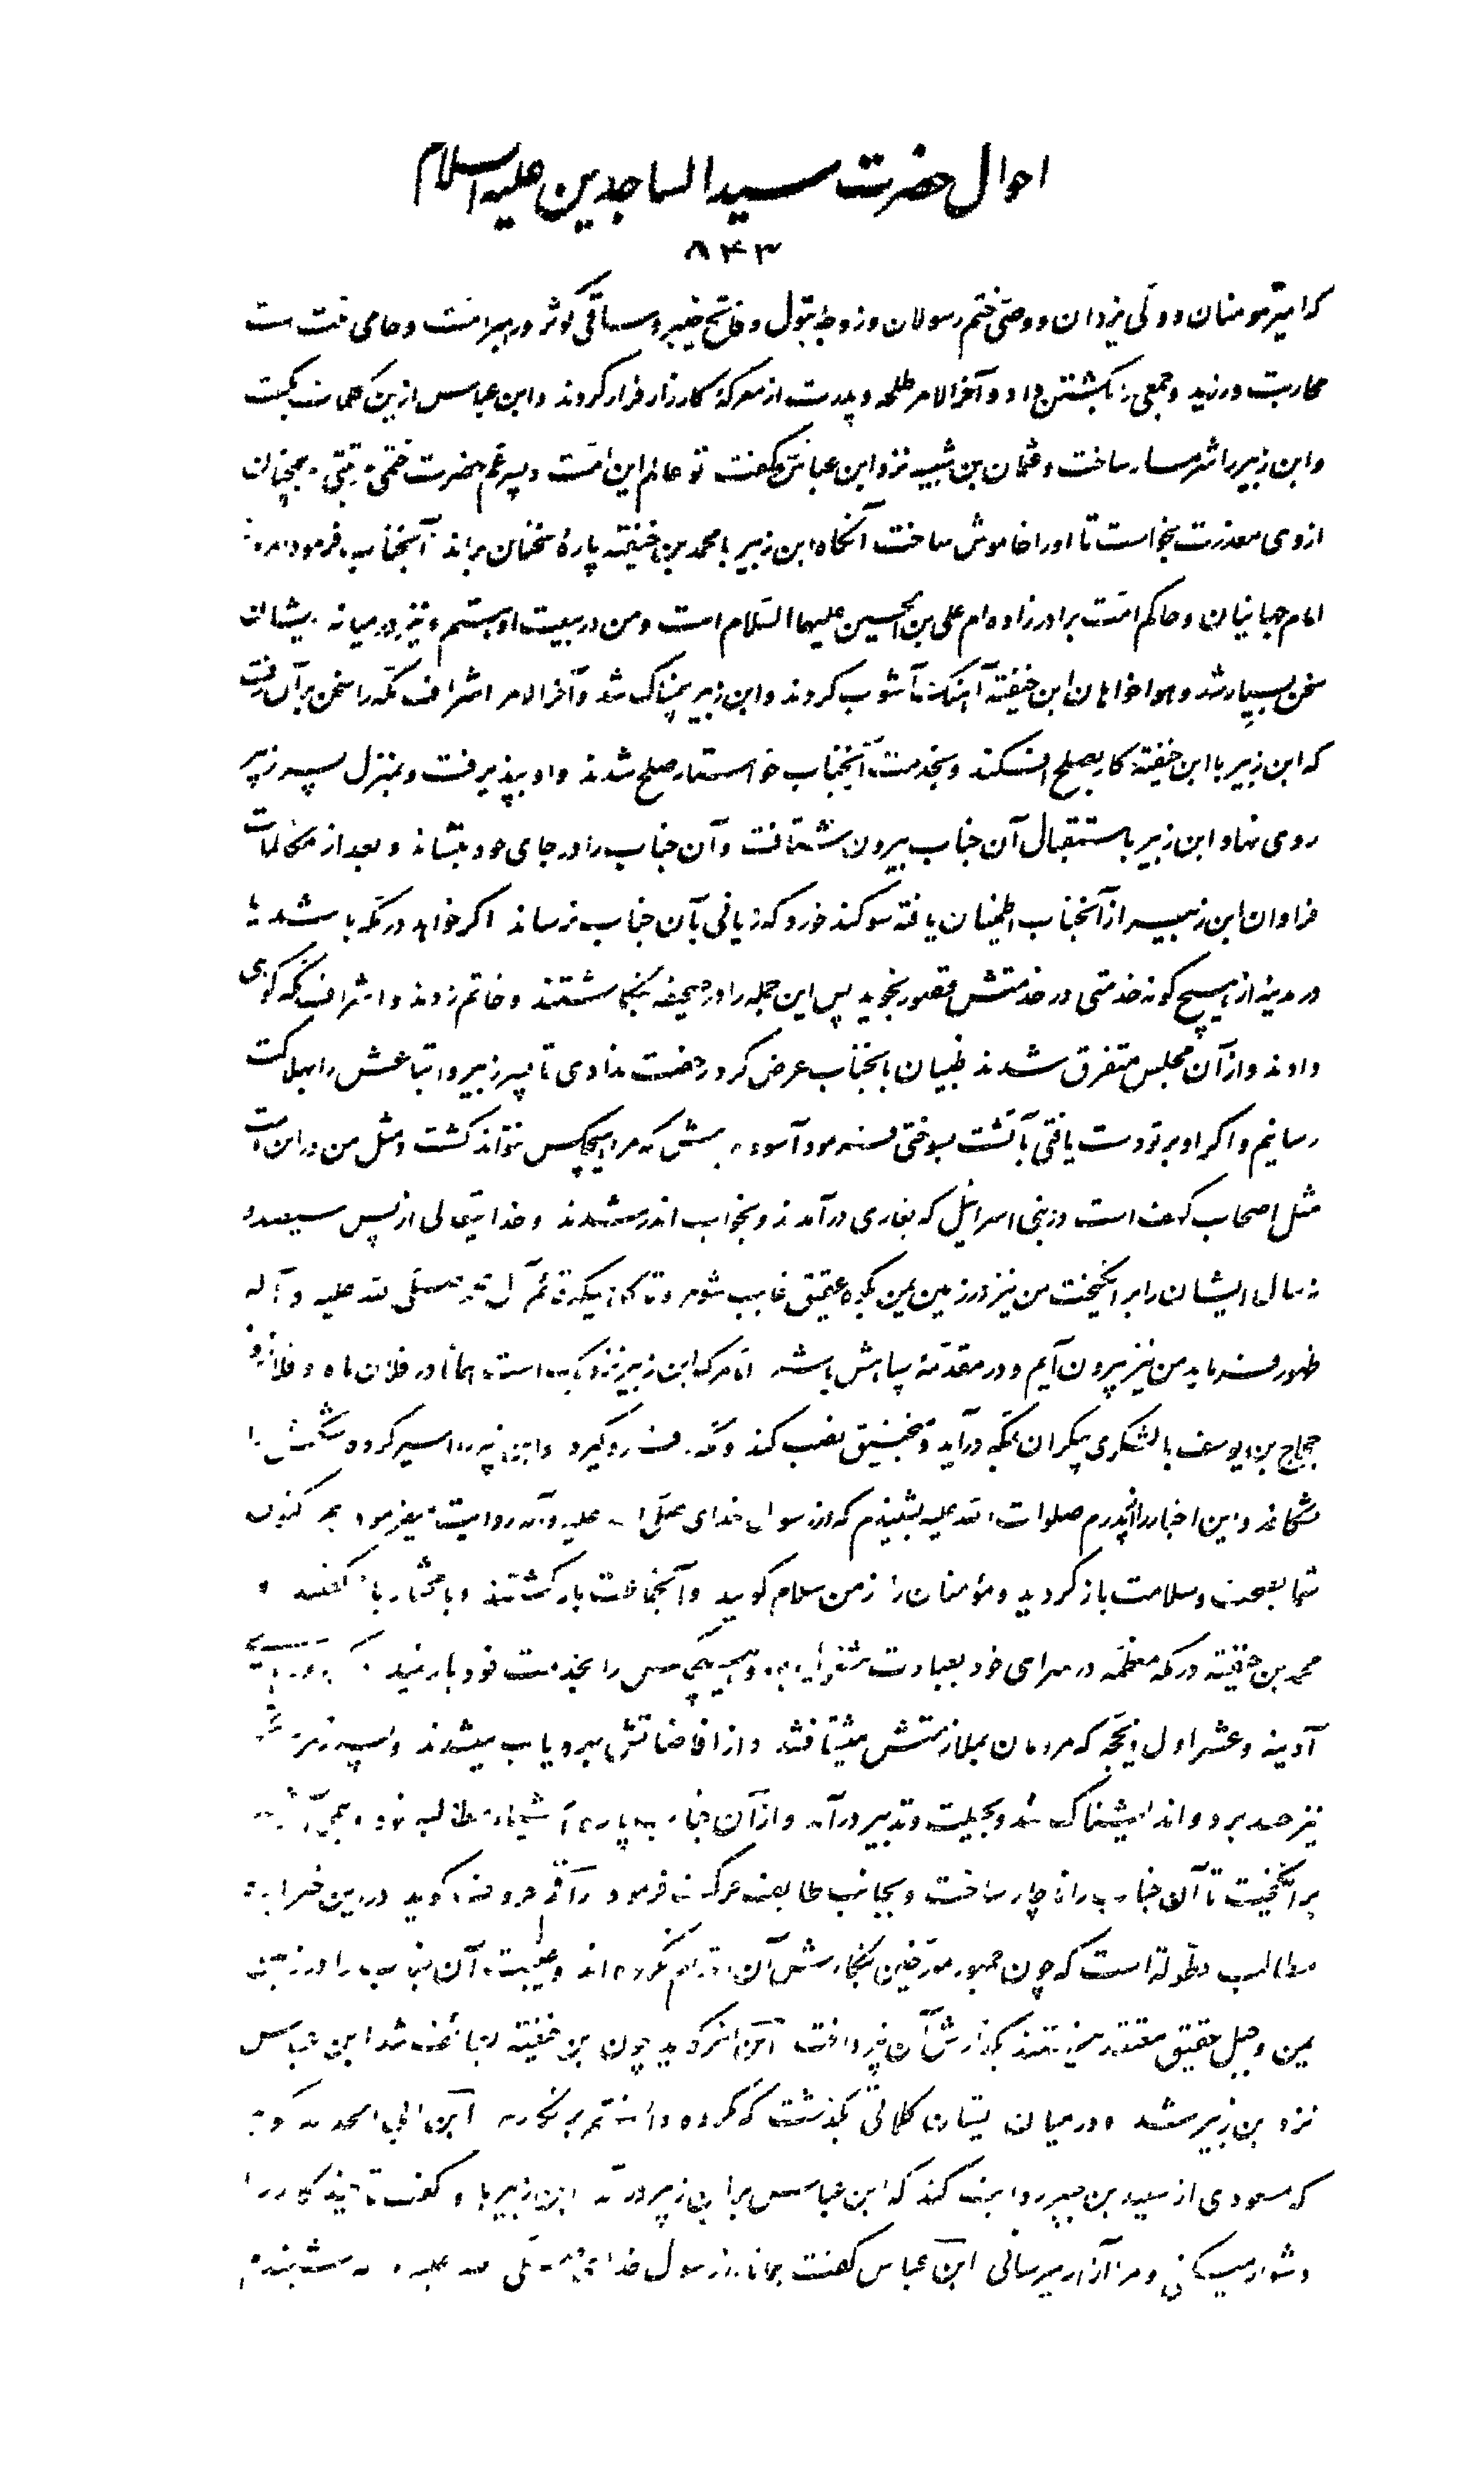 احوال حضرت سید الساجدین علیه السلام
۸۴۳
که امیر مومنان و ولی یزدان و وصی ختم رسولان و زوج بتول و فاتح خیبر و ساقی کوثر و رهبر امت و حامی ملت است
محاربت ورزید و جمعی را بکشتن داد و آخر الامر طلحه و پدرت از معرکه کارزار فرار کردند و ابن عباس ازین کلمات بگفت
و ابن زبیر را شرمسار ساخت و عثمان بن شیبه نزد ابن عباس و گفت تو عالم این امت و پسر عم حضرت ختمی مرتبتی همچنان
از وی معذرت بخواست تا او را خاموش ساخت آنگاه ابن زبیر با محمد بن حنفیه پاره سخنان براند آنجناب فرمود امروز
امام جهانیان و حاکم امت برادر زاده ام علی بن الحسین علیهما السلام است و من در بیعت او هستم و نیز در میانه ایشان
سخن بسیار شد و هوا خواهان ابن حنفیه آهنگ آشوب کردند و ابن زبیر بیمناک شد و آخر الامر اشراف مکه را سخن بر آن رفت
که ابن زبیر با ابن حنفیه کار بصلح افکند و بخدمت آنجناب خواستار صلح شدند و او بپذیرفت و بمنزل پسر زبیر
روی نهاد ابن زبیر باستقبال آن جناب بیرون شتافت و آن جناب را در جای خود بنشاند و بعد از مکالمات
فراوان ابن زبیر از آنجناب اطمینان یافته سوگند خورد که زیانی بآن جناب نرساند اگر خواهد در مکه باشد یا
در مدینه از هیچ گونه خدمتی در خدمتش قصور نجوید پس این جمله را در صحیفه بنگاشتند و خاتم زدند و اشراف مکه گواهی
دادند و از آن مجلس متفرق شدند ظبیان بآنجناب عرض کرد رخصت ندادی تا پسر زبیر و اتباعش را بهلاکت
رسانیم و اگر او بر تو دست یافتی بآتشت بسوختی فرمود آسوده باش که مرا هیچکس نتواند کشت و مثل من در این امت
مثل اصحاب کهف است در بنی اسرائیل که بغاری در آمدند و بخواب اندر شدند و خدایتعالی از پس سیصد و
نه سال ایشان را برانگیخت من نیز در زمین یمن بکوه عقیق غایب شوم و تا گاهیکه قائم آل محمد صلی الله علیه و آله
ظهور فرماید من نیز بیرون آیم و در مقدمه سپاهش باشم اما مرگ ابن زبیر نزدیک است همانا در فلان ماه و فلان روز
حجاج بن یوسف با لشکری بیکران بمکه در آید و منجنیق نصب کند و مکه فرو گیرد و ابن زبیر را اسیر کرده شکمش را
بشکافد و این اخبار را از پدرم صلوات الله علیه بشنیدم که از رسول خدای صلی الله علیه و آله روایت میفرمود هم اکنون
شما بصحت و سلامت باز گردید و مؤمنان را از من سلام گویید و آنجماعت باز گشتند و با مختار باز گفتند و
محمد بن حنفیه در مکه معظمه در سرای خود بعبادت مشغول بود و هیچکس را بخدمت خود بار نمیداد
آدینه و عشر اول ذیحجه که مردمان بملازمتش میشتافتند و از افاضاتش بهره یاب میشدند و پسر زبیر
نیز حسد برد و اندیشناک شد و بحیلت و تدبیر درآمد و از آن جناب پاره اشیاء مطالبه نمود
برانگیخت تا آن جناب را ناچار ساخت و بجانب طایف حرکت فرمود راقم حروف گوید در این خبر
مطالب مطوله است که چون جمهور مورخین بنگارش آن اقدام نکرده اند و غیبت آن جناب را در زمین
یمن و جبل عقیق معتقد نیستند بگذارش آن نپرداخت ابن اثیر گوید چون ابن حنفیه بطائف شد ابن عباس
نزد ابن زبیر شد و در میان ایشان کلماتی بگذشت که مکروه داشتم بر نگارم ابن ابی الحدید گوید
که مسعودی از سعید بن جبیر روایت کند که ابن عباس بر ابن زبیر در آمد ابن زبیر با او گفت تا چند کار را
دشوار میسازی و مرا آزار میرسانی ابن عباس گفت همانا از رسول خدای صلی الله علیه و آله شنیدم